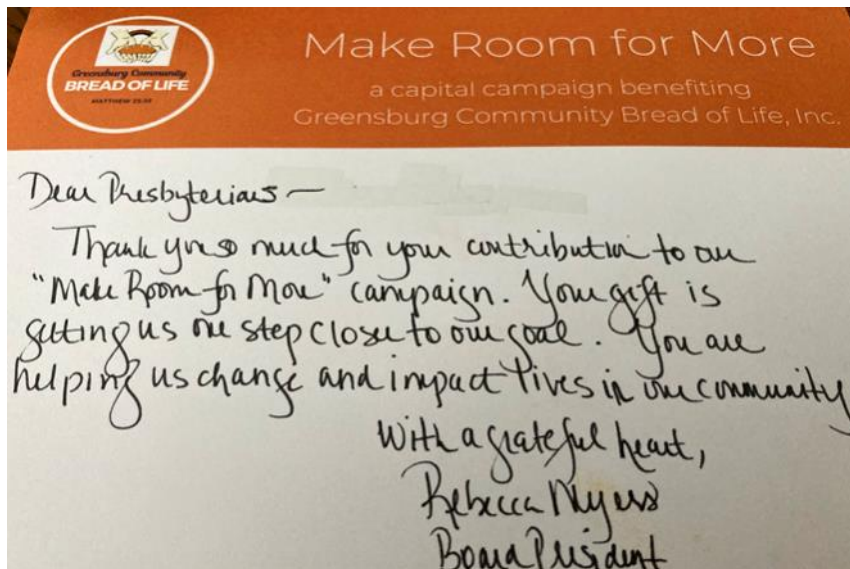 Greensburg Community
BREAD OF LIFE
Make Room for More
a capital campaign benefiting
Greensburg Community Bread of Life, Inc.
Dear Presbyterians —
Thank you so much for your contribution to our
"Make Room for More" campaign. Your gift is
getting us one step closer to our goal. You are
helping us change and impact lives in our community
With a grateful heart,
Rebecca Myers
Board President